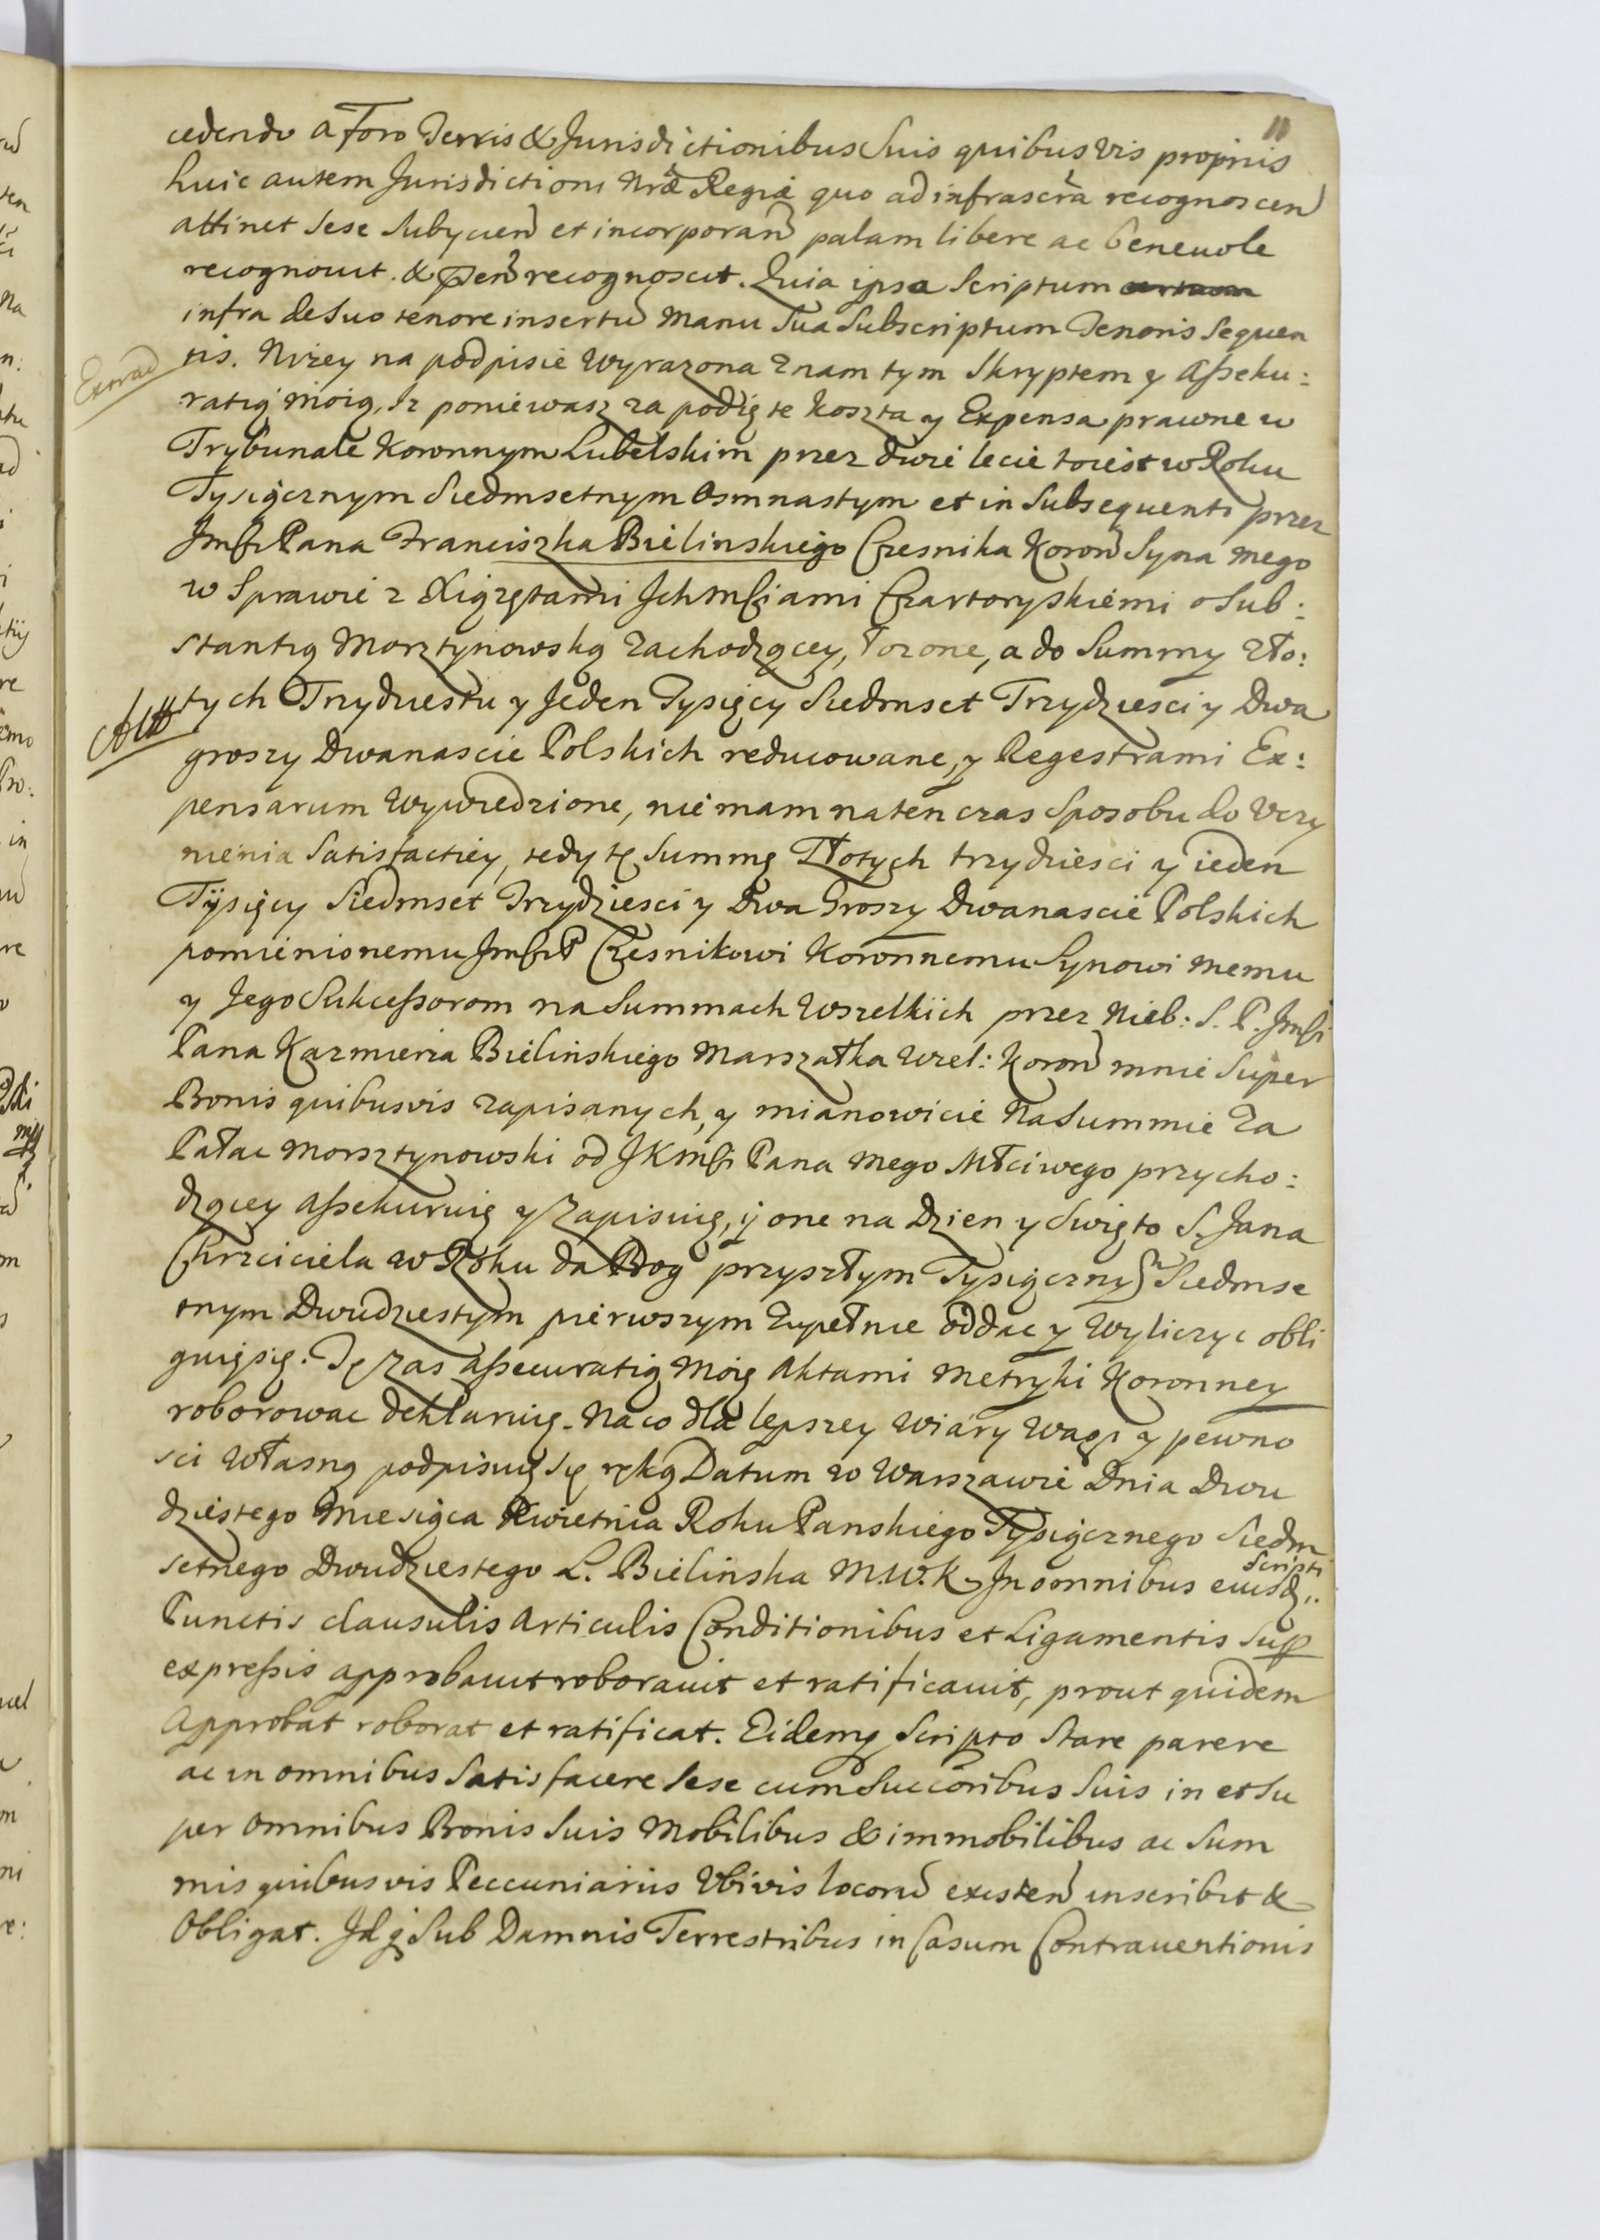 11
cedendo a Foro Terris & Jurisdictionibus Suis quibusvis propriis
huic autem Jurisdictioni Nrae Regiae quo ad infrascra recognoscen
attinet Sese Subycien et incorporan palam libere ac beneuole
recognouit. & pen recognoscit. Quia ipsa Scriptum
infra de Suo tenore insertu Manu Sua Subscriptum Tenoris Sequen
tis. Niżey na podpisie Wyrazona Znam tym Skryptem y Asseku:
ratią moią, Iz poniewasz za podięte koszta y Expensa prawne w
Trybunale Koronnym Lubelskim przez dwie lecie toiest w Roku
Tysiącznym Siedmsetnym Osmnastym et in Subsequenti przez
Jmści Pana Franciszka Bielinskiego Czesnika Koron Syna mego
w Sprawie z Xiązętami Ichmściami Czartoryskiemi o Sub:
stantią Morsztynowską Zachodzącey, łozone, a do Summy Zło:
tych Trzydziestu y Jeden Tysięcy Siedmset Trzydziesci y Dwa
groszy Dwanascie Polskich reducowane, y Regestrami Ex:
pensarum Wywiedzione, nie mam naten czas Sposobu do Uczy
nienia Satisfactiey, tedy tę Summę Złotych trzydziesci y ieden
Tysięcy Siedmset Trzydziesci y Dwa Groszy Dwanascie Polskich
pomienionemu Jmści P Czesnikowi Koronnemu Synowi memu
y Jego Sukcessorom na Summach Wszelkich przez Nieb: S. P. Jmści
Pana Kazmierza Bielińskiego Marszałka Wiel: Koron mnie Super
Bonis quibusvis zapisanych, y mianowicie Na Summie Za
Pałac Morsztynowski od JKMści Pana Mego Młciwego przycho:
dzącey assekuruię y Zapisuię, iż one na Dzien y Swięto S. Jana
Chrzciciela w Roku da Bog przyszłym Tysiącznym Siedmse
tnym Dwudziestym pierwszym Zupełnie oddac y Wyliczyc obli
guię się. Tę Zas assecuratią Moię Aktami Metryki Koronney
roborowac deklaruię. Na co dla lepszey Wiary Wagi y pewno
sci Własną podpisuię się ręką Datum w Warszawie Dnia Dwu
dziestego Miesiąca Kwietnia Roku Panskiego Tysiącznego Siedm
setnego Dwudziestego L. Bielinska M.W.K. In omnibus eiusd Scripti
Punctis clausulis Articulis Conditionibus et Ligamentis Sup
expressis approbauit roborauit et ratificauit, prout quidem
Approbat roborat et ratificat. Eidemq Scripto Stare parere
ac in omnibus Satisfacere Sese cum Succoribus Suis in et Su
per Omnibus Bonis Suis Mobilibus & immobilibus ac Sum
mis quibusvis Peccuniariis Ubivis locoru existen inscribit &
Obligat. Idq Sub Damnis Terrestribus in Casum Contrauentionis